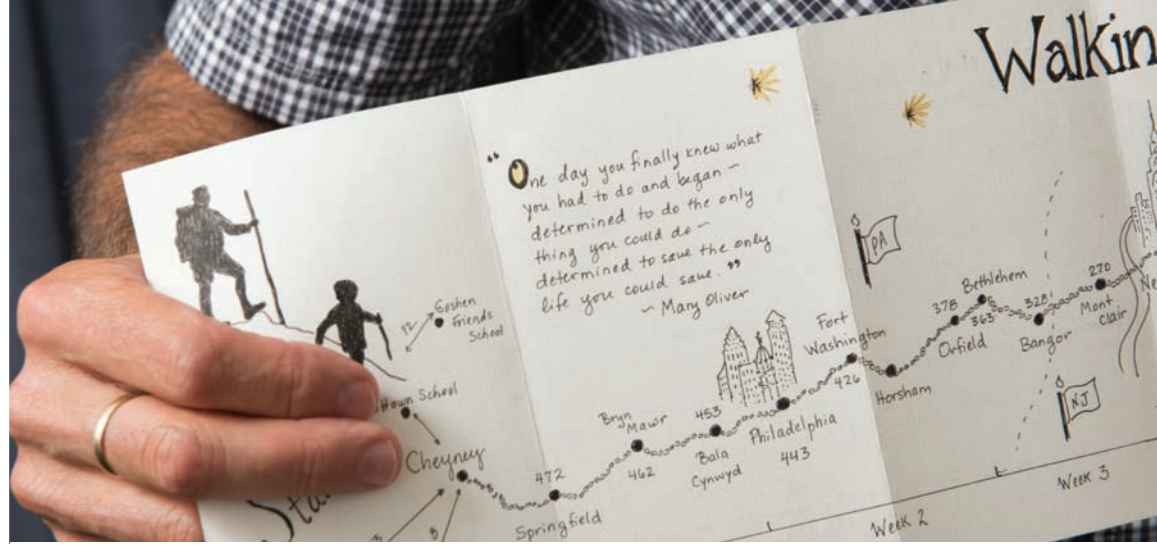 Walkin
"One day you finally knew what
you had to do and began ~
determined to do the only
thing you could do ~
determined to save the only
life you could save."
~ Mary Oliver
12
Goshen
Friends
School
School
Cheyney
472
Springfield
Bryn
Mawr
462
453
Bala
Cynwyd
Philadelphia
443
Fort
Washington
426
Horsham
PA
378
Orfield
Bethlehem
363
328
Bangor
270
Mont.
Clair
NJ
8
Week 2
Week 3